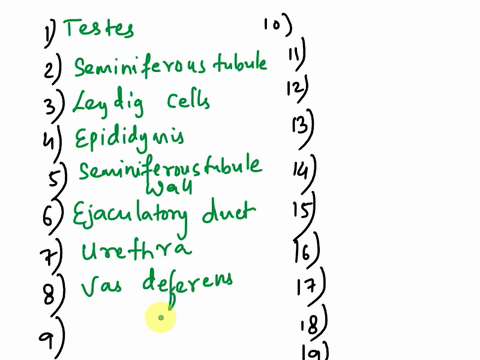 1) Testes
2) Seminiferous tubule
3) Leydig cells
4) Epididymis
5) Seminiferous tubule
wall
6) Ejaculatory duct
7) Urethra
8) Vas deferens
9)
10)
11)
12)
13)
14)
15)
16)
17)
18)
19)